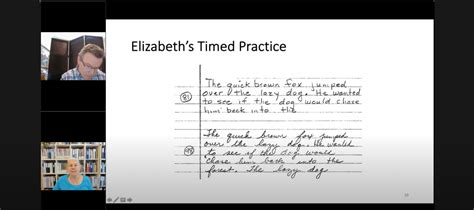 Elizabeth's Timed Practice
The quick brown fox jumped
over the lazy dog. He wanted
81
to see if the dog would chase
him back into the
The quick brown fox jumped
over the lazy dog. He wanted
to see if the dog would
chase him back into the
forest. The lazy dog